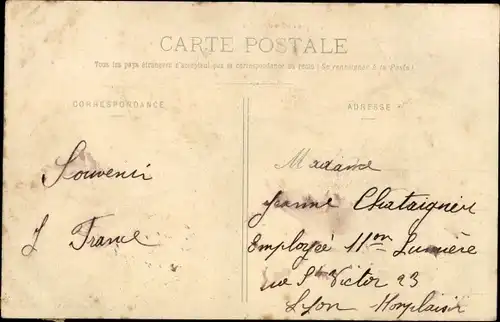 CARTE POSTALE
Tous les pays étrangers n'acceptent pas la correspondance au recto (Se renseigner à la Poste)
CORRESPONDANCE
ADRESSE
Souvenir
J France
Madame
Jeanne Chataignier
Employée 11 on Lumière
rue St Victor 23
Lyon Monplaisir